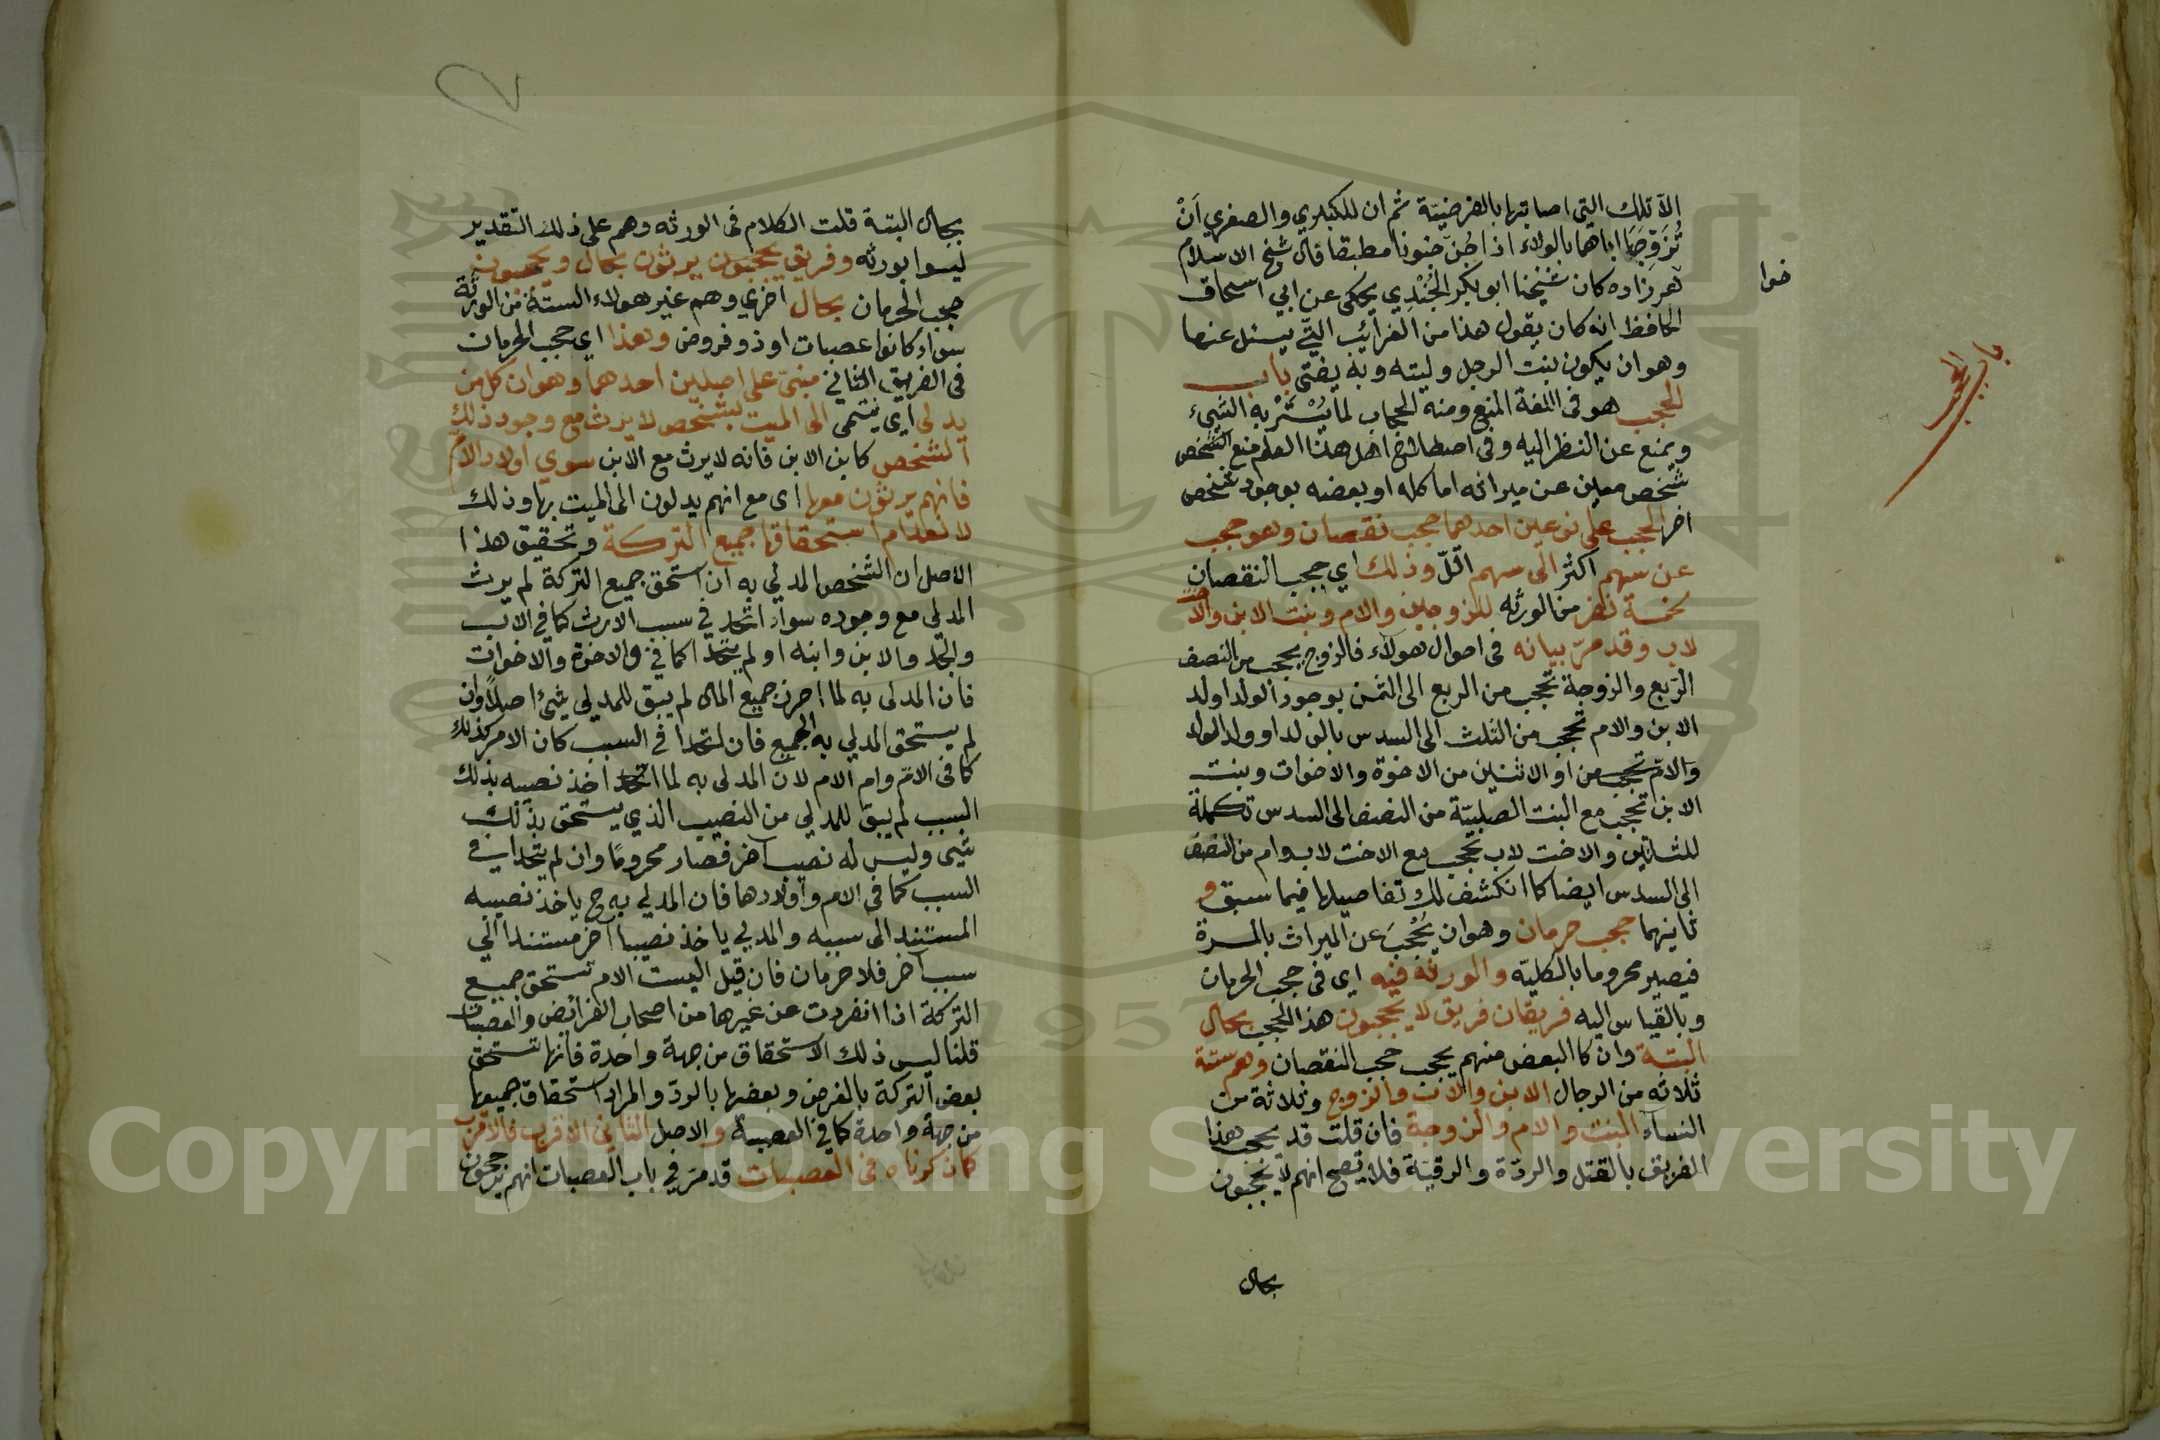 الا تلك التي اصابتها بالفرضية ثم ان للكبري والصغري اَنْ
تُزَوِّجَا اباهما بالولاء اذا جُنّ جنونا مطبقا قال شيخ الاسلام
خوا
هر زاده كان شيخنا ابو بكر الخُجَنْدِي يحكى عن ابي اسحاق
الحافظ انه كان يقول هذا من الغرائب التي يسئل عنها
وهو ان يكون بنت الرجل وليته وبه يفتى باب
باب الحجب
الحجب هو فى اللغة المنع ومنه الحجاب لما يُسْتَرُ به الشيء
ويمنع عن النظر اليه وفى اصطلاح اهل هذا العلم منع الشخص
شخص معين عن ميراثه اما كله او بعضه بوجود شخص
اخر الحجب على نوعين احدهما حجب نقصان وهو حجب
عن سهم اكثر الى سهم اقلّ وذلك اي حجب النقصان
لخمسة نفر من الورثه للزوجين والام وبنت الابن والاخت
لاب وقد مرّ بيانه فى احوال هولآء فالزوج يحجب من النصف
الرّبع والزوجة تحجب من الربع الى الثمن بوجود الولد او ولد
الابن والام تحجب من الثلث الى السدس بالولد او ولد الولد
والامّ تحجب من او الاثنين من الاخوة والاخوات وبنت
الابن تحجب مع البنت الصلبيّة من النصف الى السدس تكملة
للثلثين والاخت لاب تحجب مع الاخت لاب وام من النصف
الى السدس ايضا كما انكشف لك تفاصيلها فيما سبق و
ثانيهما حجب حرمان وهو ان يُحْجَبَ عن الميراث بالمرة
فيصير محروما بالكليّه والورثة فيه اي فى حجب الحرمان
وبالقياس اليه فريقان فريق لا يحجبون هذا الحجب بحال
البتة وان كا البعض منهم يحجب حجب النقصان وهم ستة
ثلاثه من الرجال الابن والاب والزوج وثلاثة من
النسآء البنت والام والزوجة فان قلت قد يحجب هذا
الفريق بالقتل والردّة والرقيّة فلا يصح انهم لا يحجبون
بحال
بحال البتة قلت الكلام فى الورثه وهم على ذلك التقدير
ليسوا بورثه وفريق يحجبون يرثون بحال ويحجبون
حجب الحرمان بحال اخري وهم غير هولاء الستة من الورثة
سواء كانوا عصبات او ذو فروض وهذا اي حجب الحرمان
فى الفريق الثاني مبنى على اصلين احدهما وهو ان كل من
يدلى اي ينتمى الى الميت بشخص لا يرث مع وجود ذلك
الشخص كابن الابن فانه لا يرث مع الابن سوي اولاد الام
فانهم يرثون معها اى مع انهم يدلون الى الميت بها وذلك
لانعدام استحقاقها جميع التركة وتحقيق هذا
الاصل ان الشخص المدلي به ان استحق جميع التركة لم يرث
المدلى مع وجوده سواء اتحد في سبب الارث كما في الاب
والجد والابن وابنه او لم يتحدا كما في والاخوة والاخوات
فان المدلى به لما احرز جميع المال لم يبق للمدلي شيئ اصلاً وان
لم يستحق المدلي به الجميع فان اتحدا فى السبب كان الامر كذلك
كما فى الامّ وام الام لان المدلى به لما اتحد اخذ نصيبه بذلك
السبب لم يبق للمدلي من النصيب الذي يستحق بذلك
شيى وليس له نصيب اخر فصار محروما وان لم يتحدا في
السبب كما فى الام واولادها فان المدلي به ح ياخذ نصيبه
المستند الى سببه والمدلي ياخذ نصيبا آخر مستندا الي
سبب آخر فلا حرمان فان قيل اليست الام تستحق جميع
التركة اذا انفردت عن غيرها من اصحاب الفرائض والعصبات
قلنا ليس ذلك الاستحقاق من جهة واحدة فانها تستحق
بعض التركة بالفرض وبعضها بالردّ والمراد استحقاق جميعها
من جهة واحدة كما في العصبة والاصل الثاني الاقرب فالاقرب
كما ذكرناه فى العصبات قد مرّ في باب العصبات انهم يرجحون